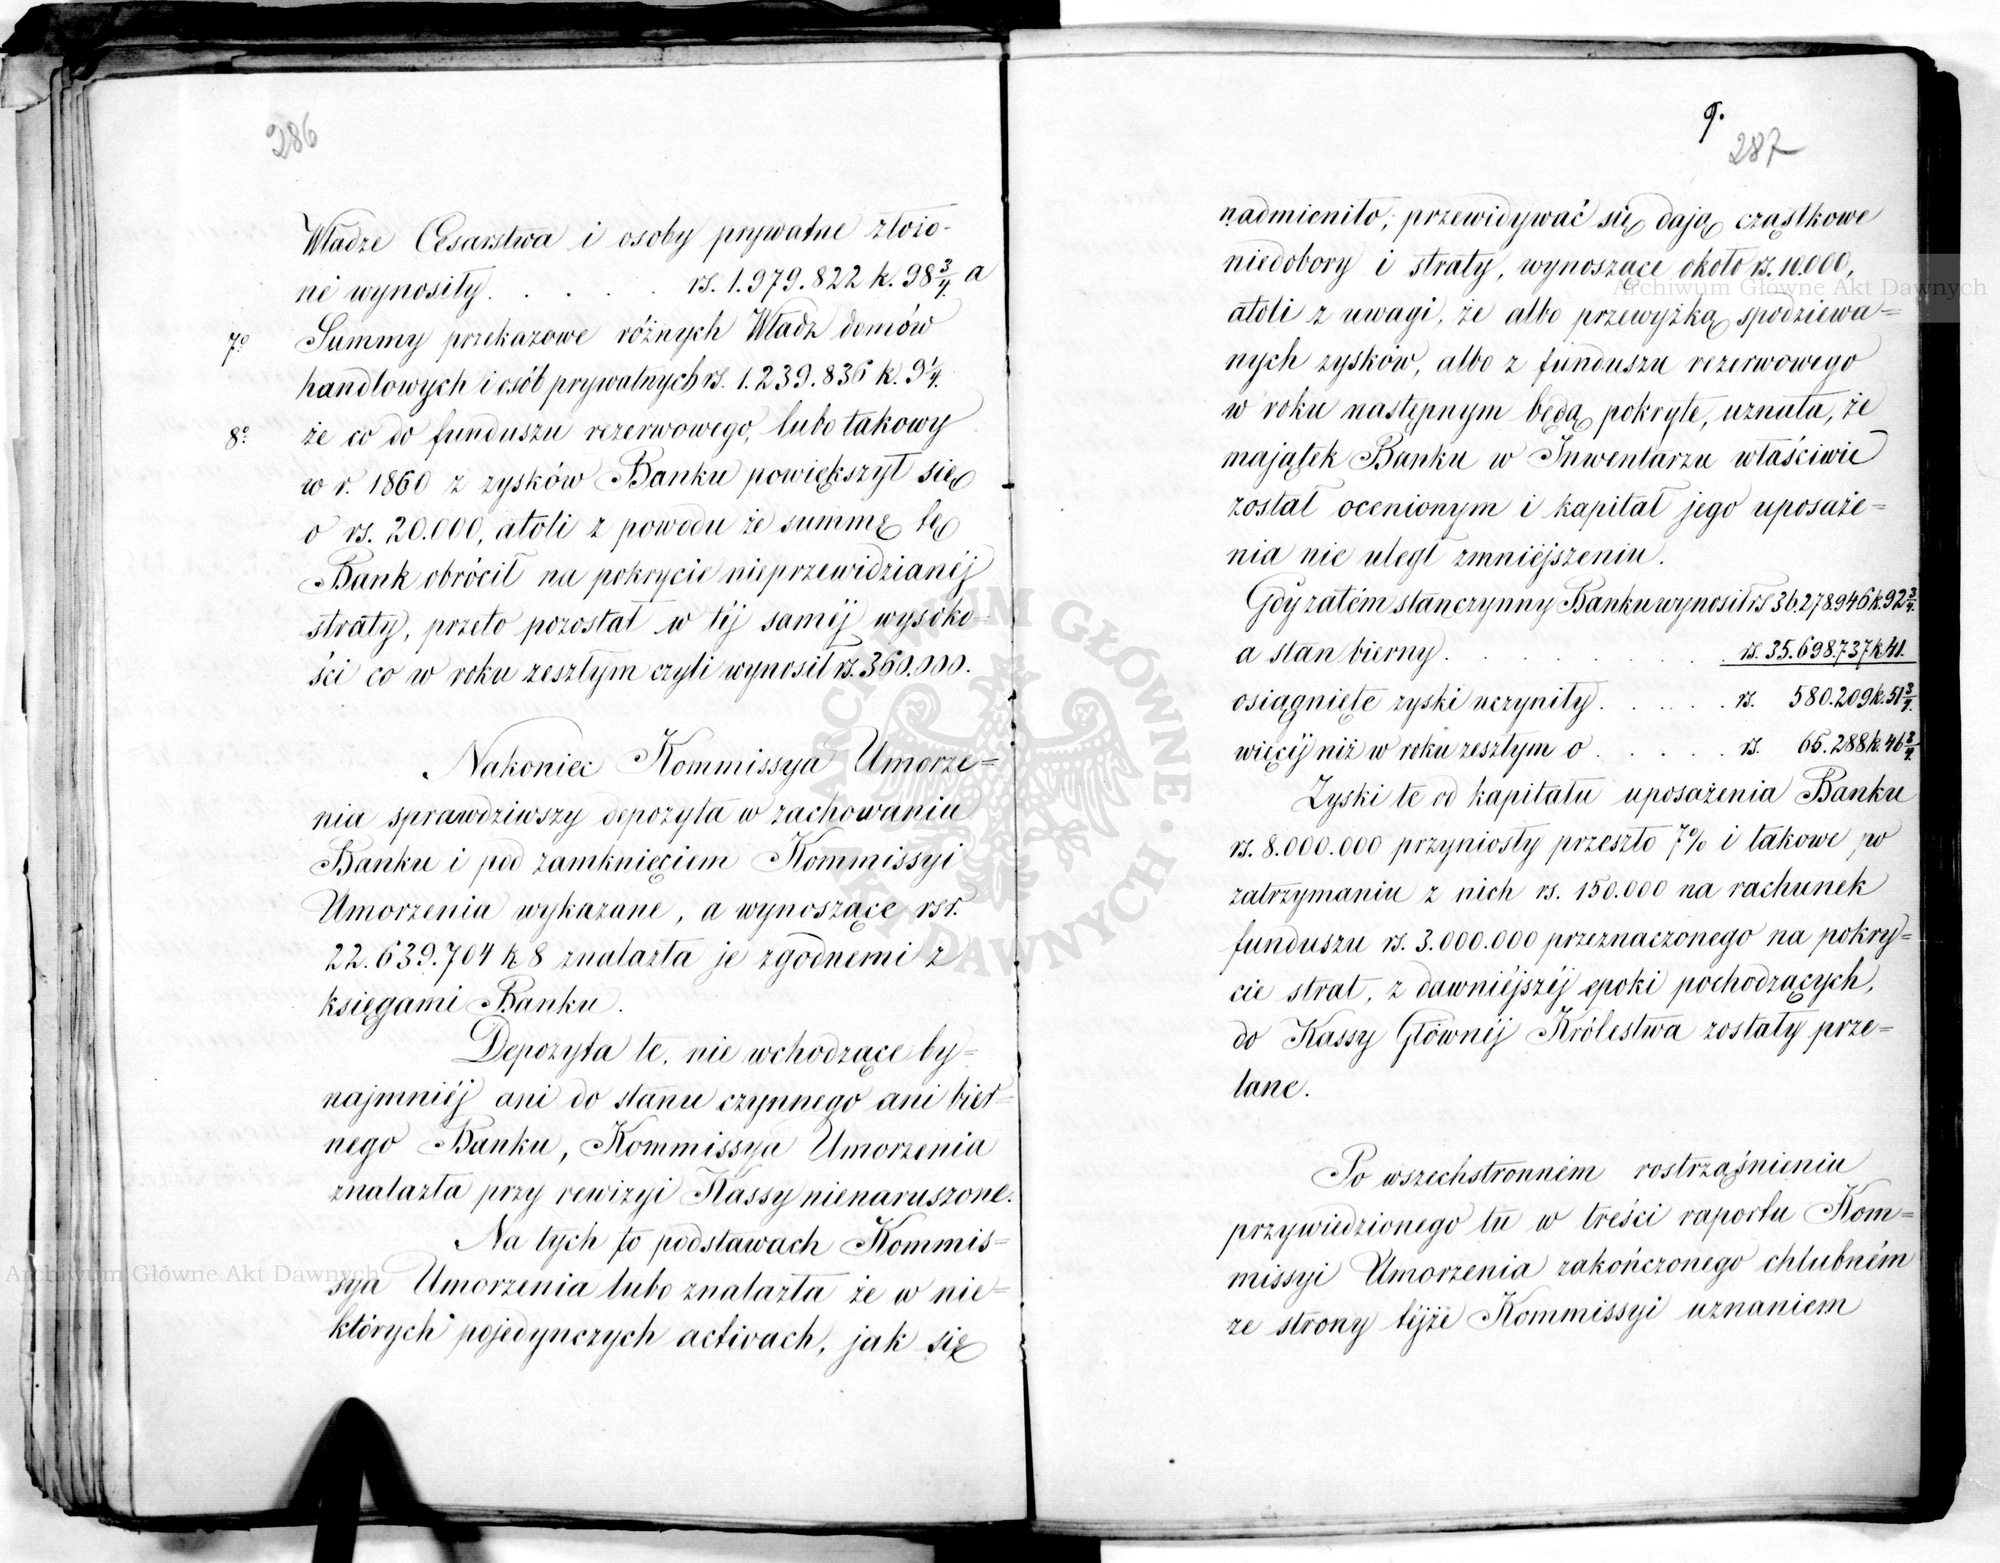 286
Władze Cesarstwa i osoby prywatne złożo-
né wynosiły. . . . . rs. 1.979.822 k. 98 3/4. a
7º Summy przekazowe różnych Władz domów
handlowych i osób prywatnych rs. 1.239.836 k. 9 1/4.
8º że co do funduszu rezerwowego, lubo takowy
w r. 1860 z zysków Banku powiększył się
o rs. 20.000, atoli z powodu że summę tę
Bank obrócił na pokrycie nieprzewidzianéj
straty, przeto pozostał w téj saméj wysoko-
ści co w roku zeszłym czyli wynosił rs. 360.000.
Nakoniec Kommissya Umorze=
nia sprawdziwszy depozyta w zachowaniu
Banku i pod zamknięciem Kommissyi
Umorzenia wykazane, a wynoszące rsr.
22.639.704 k 8 znalazła je zgodnemi z
księgami Banku.
Depozyta te, nie wchodzące by=
najmniéj ani do stanu czynnego ani bier=
nego Banku, Kommissya Umorzenia
znalazła przy rewizyi Kassy nienaruszone.
Na tych to podstawach Kommis=
sya Umorzenia lubo znalazła że w nie=
których pojedynczych activach, jak się
9.
287
nadmieniło, przewidywać się dają cząstkowe
niedobory i straty, wynoszące około rs. 10.000,
atoli z uwagi, że albo przewyżką spodziewa=
nych zysków, albo z funduszu rezerwowego
w roku następnym będą pokryte, uznała, że
majątek Banku w Inwentarzu właściwie
został ocenionym i kapitał jego uposaże=
nia nie uległ zmniéjszeniu.
Gdy zatém stan czynny Banku wynosił rs 36.278.946 k. 92 3/4.
a stan bierny. . . . . . . rs. 35.698.737 k 41.
osiągnięte zyski uczyniły. . . . . rs. 580.209 k. 51 3/4.
więcéj niż w roku zeszłym o . . . . . rs. 65.288 k. 46 3/4.
Zyski te od kapitału uposażenia Banku
rs. 8.000.000 przyniosły przeszło 7% i takowe po
zatrzymaniu z nich rs. 150.000 na rachunek
funduszu rs. 3.000.000 przeznaczonego na pokry=
cie strat, z dawniéjszéj epoki pochodzących,
do Kassy Głównéj Królestwa zostały prze=
lane.
Po wszechstronném rostrząśnieniu
przywiedzionego tu w treści raportu Kom=
missyi Umorzenia zakończonego chlubném
ze strony téjże Kommissyi uznaniem
Archiwum Główne Akt Dawnych
Archiwum Główne Akt Dawnych
ARCHIWUM GŁÓWNE AKT DAWNYCH